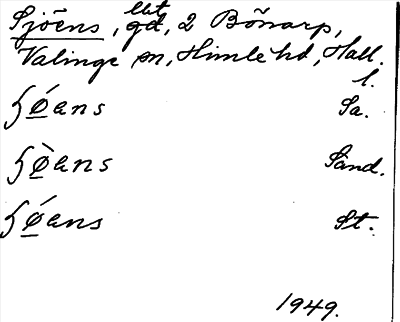 Sjöens, ebit gd, 2 Bönarp,
Valinge sn, Himle hd, Hall.
l.
ɧǿans Sa.
ɧø̀ans Sand.
ɧǿans St.
1949.